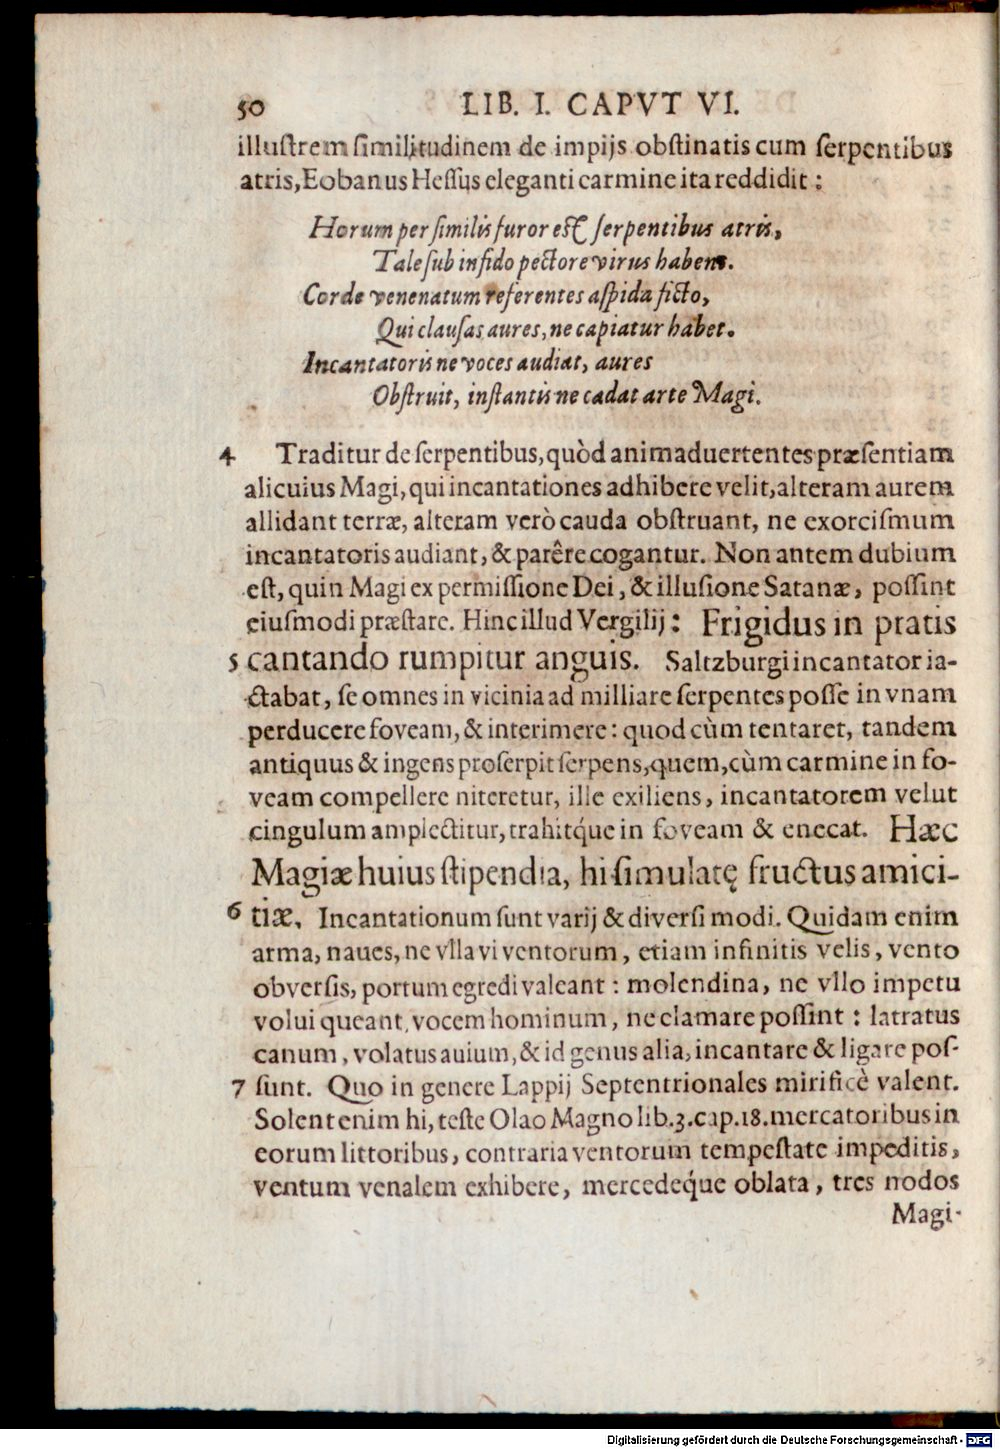 50 LIB. I. CAPVT VI.
illustrem similitudinem de impijs obstinatis cum serpentibus
atris, Eobanus Hessus eleganti carmine ita reddidit:
Horum persimilis furor est serpentibus atris,
Tale sub infido pectore virus habent.
Corde venenatum referentes aspida ficto,
Qui clausas aures, ne capiatur habet.
Incantatoris ne voces audiat, aures
Obstruit, instantis ne cadat arte Magi.
4 Traditur de serpentibus, quòd animaduertentes præsentiam
alicuius Magi, qui incantationes adhibere velit, alteram aurem
allidant terræ, alteram verò cauda obstruant, ne exorcismum
incantatoris audiant, & parêre cogantur. Non antem dubium
est, quin Magi ex permissione Dei, & illusione Satanæ, possint
eiusmodi præstare. Hinc illud Vergilij: Frigidus in pratis
5 cantando rumpitur anguis. Saltzburgi incantator ia-
ctabat, se omnes in vicinia ad milliare serpentes posse in vnam
perducere foveam, & interimere: quod cùm tentaret, tandem
antiquus & ingens proserpit serpens, quem, cùm carmine in fo-
veam compellere niteretur, ille exiliens, incantatorem velut
cingulum amplectitur, trahitq́ue in foveam & enecat. Hæc
Magiæ huius stipendia, hi simulatę fructus amici-
6 tiæ. Incantationum sunt varij & diversi modi. Quidam enim
arma, naues, ne vlla vi ventorum, etiam infinitis velis, vento
obversis, portum egredi valeant: molendina, ne vllo impetu
volui queant, vocem hominum, ne clamare possint: latratus
canum, volatus auium, & id genus alia, incantare & ligare pos-
7 sunt. Quo in genere Lappij Septentrionales mirificè valent.
Solent enim hi, teste Olao Magno lib.3.cap.18. mercatoribus in
eorum littoribus, contraria ventorum tempestate impeditis,
ventum venalem exhibere, mercedeq́ue oblata, tres nodos
Magi-
Digitalisierung gefördert durch die Deutsche Forschungsgemeinschaft - DFG